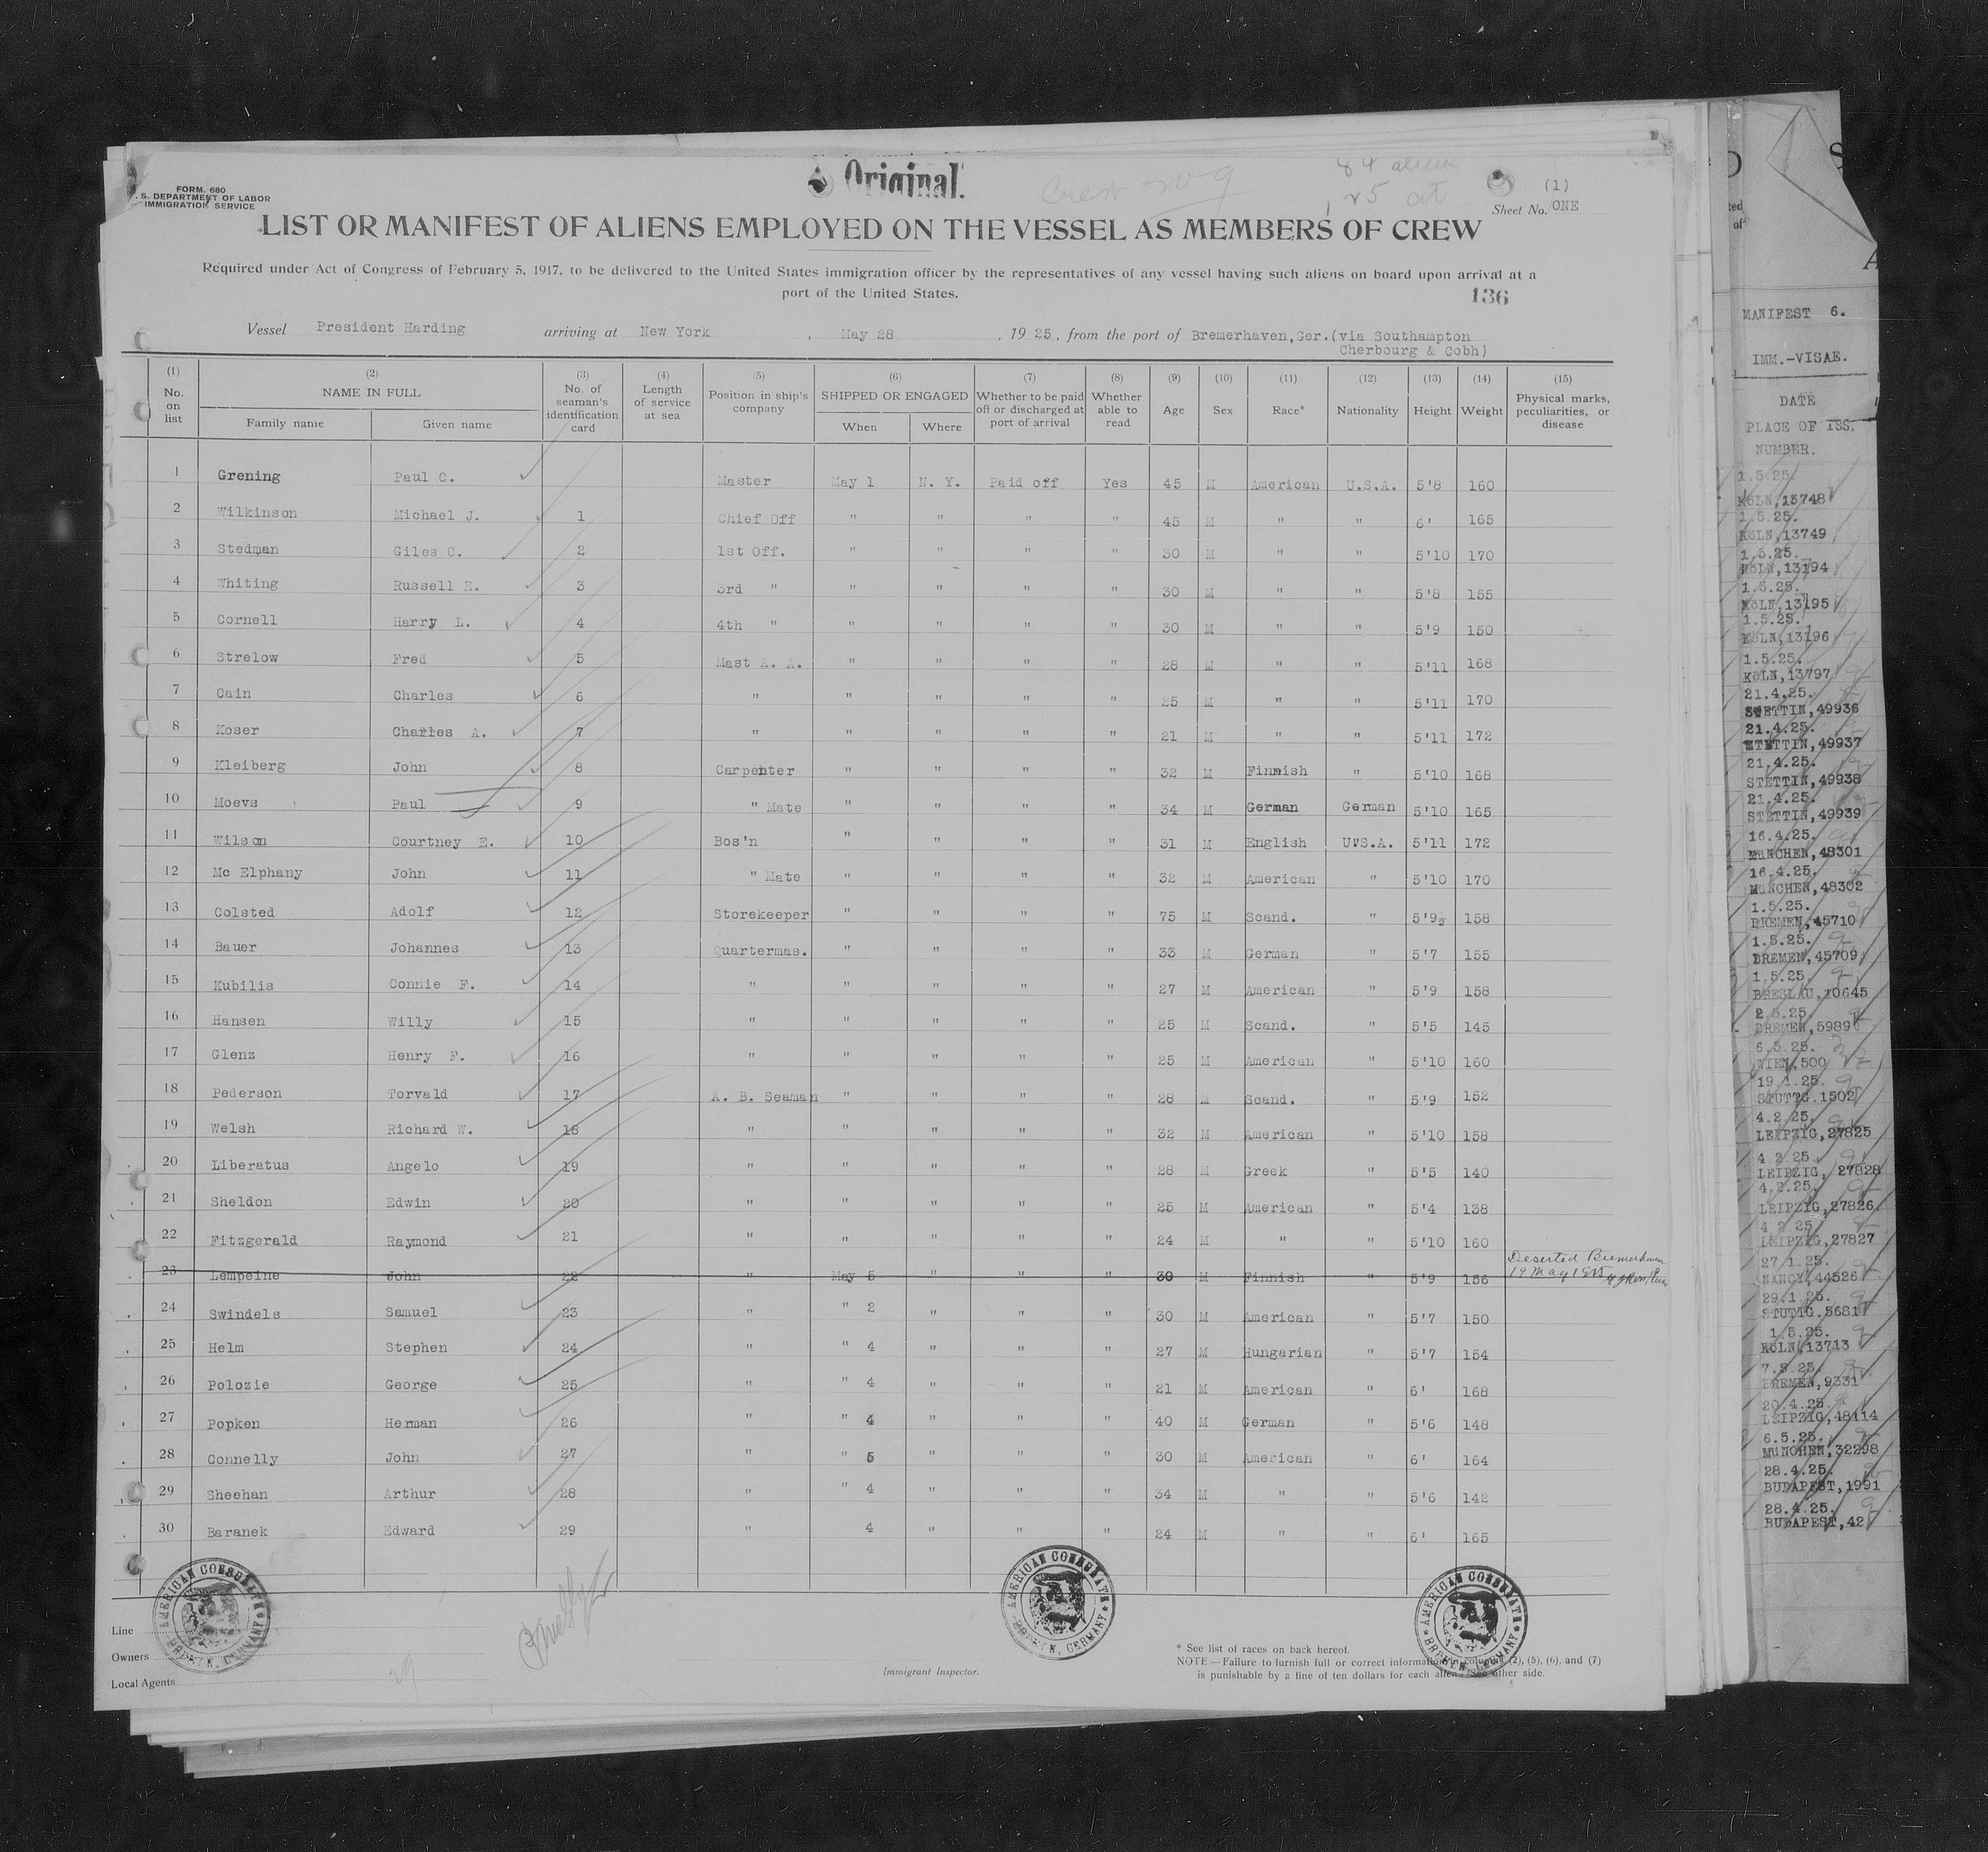 FORM. 680
S. DEPARTMENT OF LABOR
IMMIGRATION SERVICE
Original.
Crew 209
84 aliens
(1)
Sheet No. ONE
LIST OR MANIFEST OF ALIENS EMPLOYED ON THE VESSEL AS MEMBERS OF CREW
Required under Act of Congress of February 5, 1917, to be delivered to the United States immigration officer by the representatives of any vessel having such aliens on board upon arrival at a
port of the United States.
136
Vessel President Harding arriving at New York , May 28 , 19 25, from the port of Bremerhaven,Ger.(via Southampton
Cherbourg & Cobh)
(1) No. on list (2) NAME IN FULL Family name Given name (3) No. of seaman's identification card (4) Length of service at sea (5) Position in ship's company (6) SHIPPED OR ENGAGED When Where (7) Whether to be paid off or discharged at port of arrival (8) Whether able to read (9) Age (10) Sex (11) Race* (12) Nationality (13) Height (14) Weight (15) Physical marks, peculiarities, or disease
1 Grening Paul C. Master May 1 N. Y. Paid off Yes 45 M American U.S.A. 5'8 160
2 Wilkinson Michael J. 1 Chief Off " " " " 45 M " " 6' 165
3 Stedman Giles C. 2 1st Off. " " " " 30 M " " 5'10 170
4 Whiting Russell E. 3 3rd " " " " " 30 M " " 5'8 155
5 Cornell Harry L. 4 4th " " " " " 30 M " " 5'9 150
6 Strelow Fred 5 Mast A. A. " " " " 28 M " " 5'11 168
7 Cain Charles 6 " " " " " 25 M " " 5'11 170
8 Koser Charles A. 7 " " " " " 21 M " " 5'11 172
9 Kleiberg John 8 Carpenter " " " " 32 M Finnish " 5'10 168
10 Moevs Paul 9 " Mate " " " " 34 M German German 5'10 165
11 Wilson Courtney E. 10 Bos'n " " " " 31 M English UvS.A. 5'11 172
12 Mc Elphany John 11 " Mate " " " " 32 M American " 5'10 170
13 Colsted Adolf 12 Storekeeper " " " " 75 M Scand. " 5'9½ 158
14 Bauer Johannes 13 Quartermas. " " " " 33 M German " 5'7 155
15 Kubilis Connie F. 14 " " " " " 27 M American " 5'9 158
16 Hansen Willy 15 " " " " " 25 M Scand. " 5'5 145
17 Glenz Henry F. 16 " " " " " 25 M American " 5'10 160
18 Pederson Torvald 17 A. B. Seaman " " " " 28 M Scand. " 5'9 152
19 Welsh Richard W. 18 " " " " " 32 M American " 5'10 158
20 Liberatus Angelo 19 " " " " " 28 M Greek " 5'5 140
21 Sheldon Edwin 20 " " " " " 25 M American " 5'4 138
22 Fitzgerald Raymond 21 " " " " " 24 M " " 5'10 160
23 Lempeine John 22 " May 5 " " " 30 M Finnish " 5'9 156 Deserted Bremerhaven
19 May 1925
24 Swindels Samuel 23 " " 2 " " " 30 M American " 5'7 150
25 Helm Stephen 24 " " 4 " " " 27 M Hungarian " 5'7 154
26 Polozie George 25 " " 4 " " " 21 M American " 6' 168
27 Popken Herman 26 " " 4 " " " 40 M German " 5'6 148
28 Connelly John 27 " " 5 " " " 30 M American " 6' 164
29 Sheehan Arthur 28 " " 4 " " " 34 M " " 5'6 142
30 Baranek Edward 29 " 4 " " " 24 M " " 6' 165
AMERICAN CONSULATE BREMEN, GERMANY
AMERICAN CONSULATE BREMEN, GERMANY
AMERICAN CONSULATE BREMEN, GERMANY
Line
Owners
Local Agents
29
Immigrant Inspector.
* See list of races on back hereof.
NOTE — Failure to furnish full or correct information in columns (2), (5), (6), and (7)
is punishable by a fine of ten dollars for each alien. See other side.
MANIFEST 6.
IMM.-VISAE.
DATE
PLACE OF ISS.
NUMBER.
1.5.25.
KöLN,13748
1.5.25.
KöLN,13749
1.5.25.
KöLN,13194
1.5.25.
KöLN,13195
1.5.25.
KöLN,13196
1.5.25.
KöLN,13797
21.4.25.
STETTIN,49936
21.4.25.
STETTIN,49937
21.4.25.
STETTIN,49938
21.4.25.
STETTIN,49939
16.4.25.
MüNCHEN,48301
16.4.25.
MüNCHEN,48302
1.5.25.
BREMEN,45710
1.5.25.
BREMEN,45709
1.5.25.
BRESLAU,10645
2.5.25
BREMEN,5989
6.5.25.
WIEN,500
19 1.25.
STUTTG.1502
4.2.25.
LEIPZIG,27825
4 2 25.
LEIPZIG, 27828
4.2.25.
LEIPZIG,27826
4 2 25
LEIPZIG,27827
27.1.25.
NANCY,44526
29.1.25.
STUTTG.56817
1.5.25.
KöLN,13713
7.5.25.
BREMEN,9331
20.4.25.
LEIPZIG,48114
6.5.25.
MüNCHEN,32298
28.4.25.
BUDAPEST,1991
28.4.25.
BUDAPEST,42